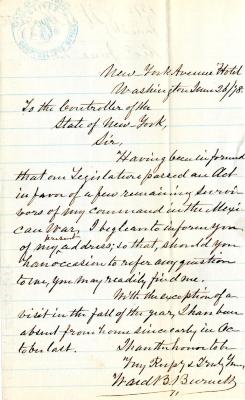 New York Avenue Hotel
Washington June 26/78.
To the Controller of the
State of New York,
Sir,
Having been informed
that our Legislature passed an Act
in favor of a few remaining survi
vors of my command in the Mexi
can War, I beg leave to inform you
of my present address; so that, should you
have occasion to refer any question
to me, you may readily find me.
With the exception of a
visit in the fall of the year, I have been
absent from home since early in Oc
tober last.
I have the honor to be
Very Respy & Truly Yours,
Ward B. Burnett